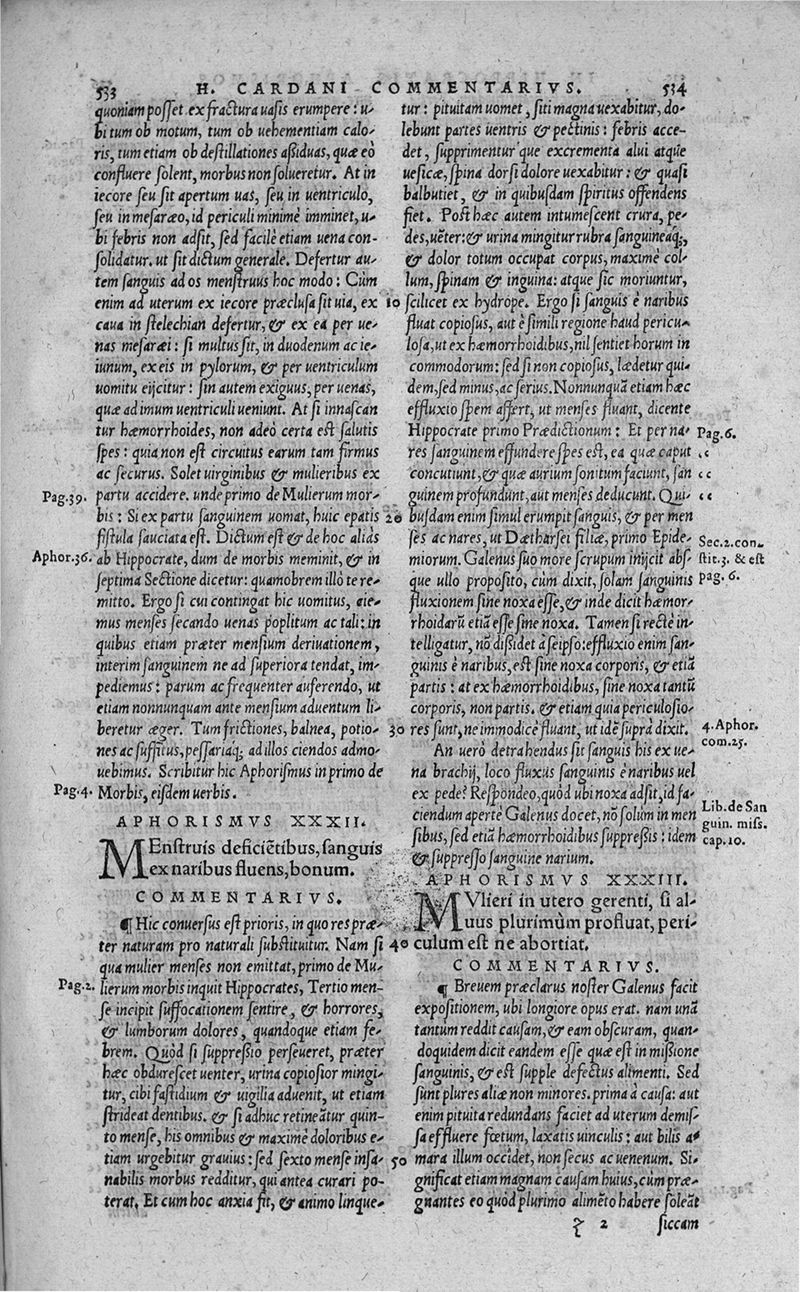 533 H. CARDANI COMMENTARIVS. 534
quoniam posset ex fractura uasis erumpere: u-
bi tum ob motum, tum ob uehementiam calo-
ris, tum etiam ob destillationes assiduas, quæ eò
confluere solent, morbus non solueretur. At in
iecore seu sit apertum uas, seu in uentriculo,
seu in mesaræo, id periculi minimè imminet, u-
bi febris non adsit, sed facilè etiam uena con-
solidatur. ut sit dictum generale. Defertur au-
tem sanguis ad os menstruus hoc modo: Cùm
enim ad uterum ex iecore præclusa sit uia, ex
caua in stelechian defertur, & ex ea per ue-
nas mesaræi: si multus sit, in duodenum ac ie-
iunum, ex eis in pylorum, & per uentriculum
uomitu eijcitur: sin autem exiguus, per uenas,
quæ ad imum uentriculi ueniunt. At si innascan
tur hæmorrhoides, non adeò certa est salutis
spes: quia non est circuitus earum tam firmus
ac securus. Solet uirginibus & mulieribus ex
Pag.39. partu accidere. unde primo de Mulierum mor-
bis: Si ex partu sanguinem uomat, huic epatis
fistula sauciata est. Dictum est & de hoc aliàs
Aphor.36. ab Hippocrate, dum de morbis meminit, & in
septima Sectione dicetur: quamobrem illò te re-
mitto. Ergo si cui contingat hic uomitus, cie-
mus menses secando uenas poplitum ac tali: in
quibus etiam præter mensium deriuationem,
interim sanguinem ne ad superiora tendat, im-
pediemus: parum ac frequenter auferendo, ut
etiam nonnunquam ante mensium aduentum li-
beretur æger. Tum frictiones, balnea, potio-
nes ac suffitus, pessariaq; ad illos ciendos admo-
uebimus. Scribitur hic Aphorismus in primo de
Pag.4. Morbis, eisdem uerbis.
APHORISMVS XXXII.
MEnstruis deficiẽtibus, sanguis
ex naribus fluens, bonum.
COMMENTARIVS.
¶ Hic conuersus est prioris, in quo res præ-
ter naturam pro naturali substituitur. Nam si
qua mulier menses non emittat, primo de Mu-
Pag.2. lierum morbis inquit Hippocrates, Tertio men-
se incipit suffocationem sentire, & horrores,
& lumborum dolores, quandoque etiam fe-
brem. Quòd si suppressio perseueret, præter
hæc obdurescet uenter, urina copiosior mingi-
tur, cibi fastidium & uigilia aduenit, ut etiam
strideat dentibus. & si adhuc retineãtur quin-
to mense, his omnibus & maximè doloribus e-
tiam urgebitur grauius: sed sexto mense insa-
nabilis morbus redditur, qui antea curari po-
terat. Et cum hoc anxia fit, & animo linque-
tur: pituitam uomet, siti magna uexabitur, do-
lebunt partes uentris & pectinis: febris acce-
det, supprimentur que excrementa alui atque
uesicæ, spina dorsi dolore uexabitur: & quasi
balbutiet, & in quibusdam spiritus offendens
fiet. Post hæc autem intumescent crura, pe-
des, uẽter: & urina mingitur rubra sanguineaq;,
& dolor totum occupat corpus, maximè col-
lum, spinam & inguina: atque sic moriuntur,
10 scilicet ex hydrope. Ergo si sanguis è naribus
fluat copiosus, aut è simili regione haud pericu-
losa, ut ex hæmorrhoidibus, nil sentiet horum in
commodorum: sed si non copiosus, lædetur qui-
dem, sed minus, ac serius. Nonnunquã etiam hæc
effluxio spem affert, ut menses fluant, dicente
Hippocrate primo Prædictionum: Et per na- Pag.6.
res sanguinem effundere spes est, ea quæ caput “
concutiunt, & quæ aurium sonitum faciunt, san “
guinem profundunt, aut menses deducunt. Qui- “
20 busdam enim simul erumpit sanguis, & per men
ses ac nares, ut Dætharsei filiæ, primo Epide- Sec.2.con-
miorum. Galenus suo more scrupum inijcit abs- stit.3. & est
que ullo proposito, cùm dixit, solam sanguinis pag.6.
fluxionem sine noxa esse, & inde dicit hæmor-
rhoidarũ etiã esse sine noxa. Tamen si rectè in-
telligatur, nõ dissidet à seipso: effluxio enim san-
guinis è naribus, est sine noxa corporis, & etiã
partis: at ex hæmorrhoidibus, sine noxa tantũ
corporis, non partis. & etiam quia periculosio-
30 res sunt, ne immodicè fluant, ut idẽ suprà dixit. 4.Aphor.
An uerò detrahendus sit sanguis his ex ue- com.25.
na brachij, loco fluxus sanguinis è naribus uel
ex pede? Respondeo, quòd ubi noxa adsit, id fa-
ciendum apertè Galenus docet, nõ solùm in men Lib.de San
sibus, sed etiã hæmorrhoidibus suppressis: idem guin. miss.
& suppresso sanguine narium. cap.10.
APHORISMVS XXXIII.
MVlieri in utero gerenti, si al-
uus plurimùm profluat, peri-
40 culum est ne abortiat.
COMMENTARIVS.
¶ Breuem præclarus noster Galenus facit
expositionem, ubi longiore opus erat. nam unã
tantum reddit causam, & eam obscuram, quan-
doquidem dicit eandem esse quæ est in missione
sanguinis, & est supple defectus alimenti. Sed
sunt plures aliæ non minores. prima à causa: aut
enim pituita redundans faciet ad uterum demis-
sa effluere fœtum, laxatis uinculis: aut bilis a-
50 mara illum occidet, non secus ac uenenum. Si-
gnificat etiam magnam causam huius, cùm præ-
gnantes eo quòd plurimo alimẽto habere soleãt
2 siccam